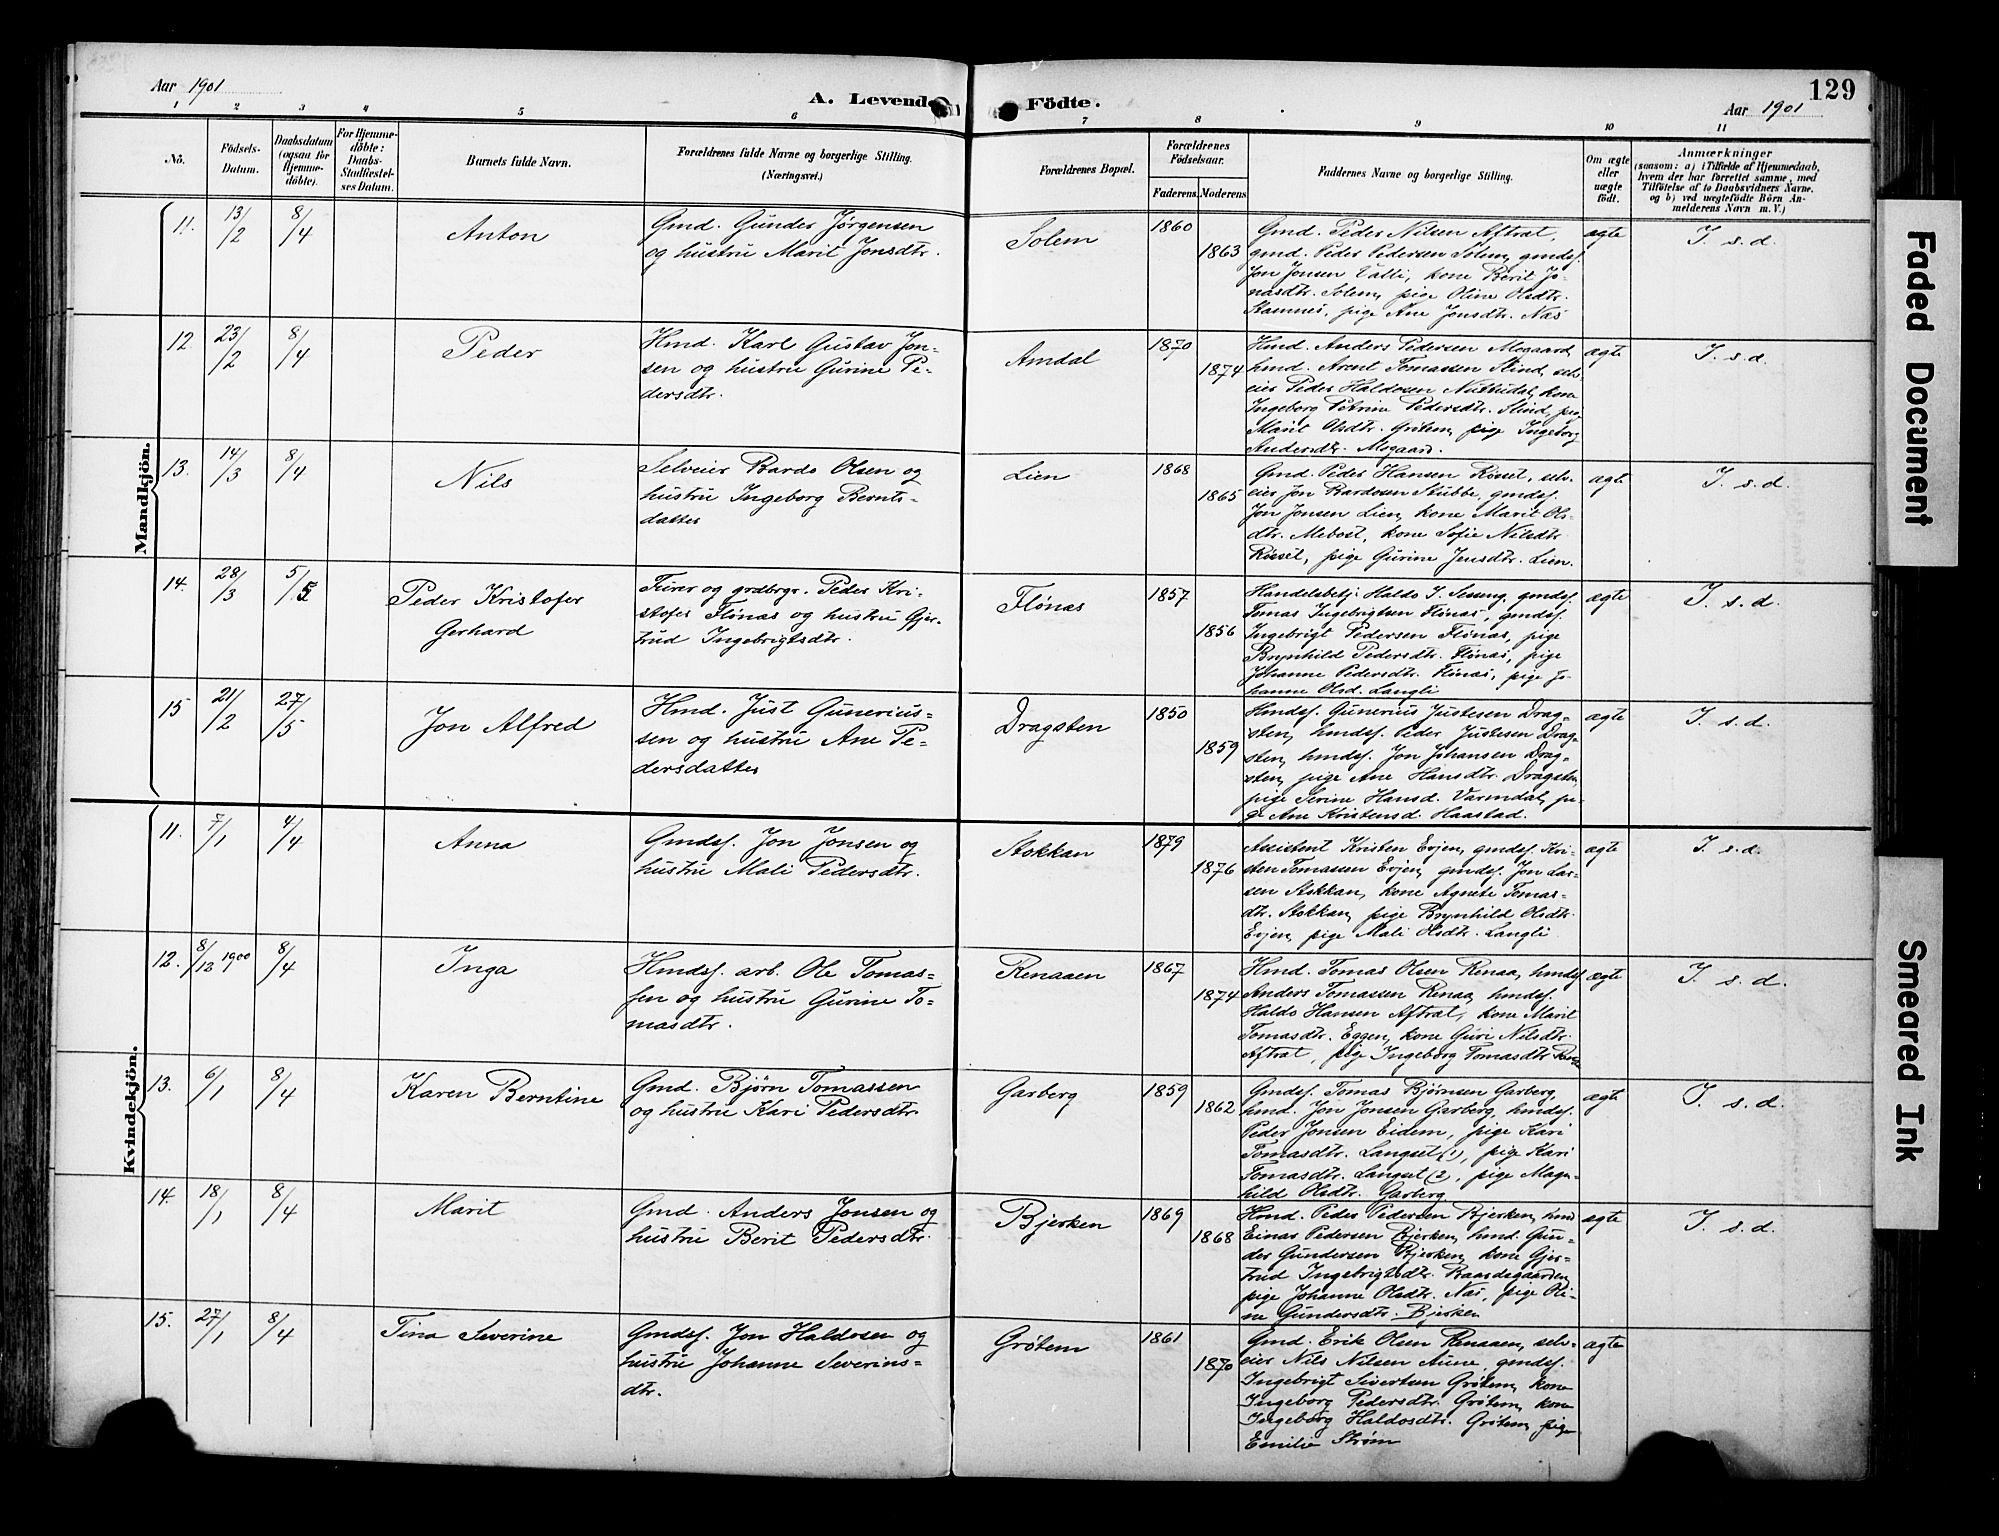 Aar 1901
A. Levende Födte.
129
Aar 1901
1 2 3 4 5 6 7 8 9 10 11
No. Födsels-Datum. Daabsdatum (ogsaa for Hjemmedöbte). For Hjemmedöbte: Daabs-Stadfæstelses Datum. Barnets fulde Navn. Forældrenes fulde Navne og borgerlige Stilling. (Næringsvei.) Forældrenes Bopæl. Forældrenes Födselsaar. Faderens. Moderens. Faddernes Navne og borgerlige Stilling. Om ægte eller uægte födt. Anmærkninger (saasom: a) i Tilfælde af Hjemmedaab, hvem der har forrettet samme, med Tilföielse af to Daabsvidners Navne, og b) ved uægtefödte Börn Anmelderens Navn m. V.)
Mandkjön.
11. 13/2 8/4 Anton
Gmd. Gunder Jørgensen
og hustru Marit Jonsdtr.
Solem 1860 1863
Gmd. Peder Nilsen Aftret,
gmd. Peder Pedersen Solem, gmdsf.
Jon Jonsen Valli, kone Berit Jo-
nasdtr. Solem, pige Oline Olsdtr.
Kamnes, pige Ane Jonsdtr. Næs
ægte I. s. d.
12 23/2 8/4 Peder
Hmd. Karl Gustav Jon-
sen og hustru Gurine Pe-
dersdtr.
Amdal 1870 1874
Hmd. Anders Pedersen Mogaard,
hmd. Arent Tomassen Slind, selv-
eier Peder Haldosen kone
Ingeborg Petrine Pedersdtr. Slind, pige
Marit Olsdtr. Grøtem, pige Ingeborg
Andersdtr. Mogaard.
ægte I. s. d.
13. 14/3 8/4 Nils
Selveier Bardo Olsen og
hustru Ingeborg Bernts-
datter
Lien 1868 1865
Gmd. Peder Hansen Rosset, selv-
eier Jon Bardosen Stubbe, gmdsf.
Jon Jonsen Lien, kone Marit Ols-
dtr. Mebost, kone Sofie Nilsdtr.
Rosset, pige Gurine Jensdtr. Lien.
ægte I. s. d.
14. 28/3 5/5 Peder Kristofer
Gerhard
Furer og grdbrgr. Peder Kri-
stofer Flönæs og hustru Gjer-
trud Ingebrigtsdtr.
Flönæs 1857 1856
Handelsbetj. Haldo J. gmdsf.
Tomas Ingebrigtsen Flönæs, gmdsf.
Ingebrigt Pedersen Flönæs, pige
Brynhild Pedersdtr. Flönæs, pige
Johanne Pedersdtr. Flönæs, pige Jo-
hanne Olsd. Langli
ægte I. s. d.
15 21/2 27/5 Jon Alfred
Hmd. Just Gunerius-
sen og hustru Ane Pe-
dersdatter
Dragsten 1850 1859
Hmdsf. Gunerius Justesen Drag-
sten, hmdsf. Peder Justesen Drag-
sten, hmdsf. Jon Johansen Drag-
sten, pige Ane Hansdtr. Dragsten,
pige Serine Hansd. Varmdal, pi-
ge Ane Kristensd. Haastad.
ægte I. s. d.
Kvindekjön.
11. 7/1 4/4 Anna
Gmdsf. Jon Jonsen og
hustru Mali Pedersdtr.
Stokkan 1879 1876
Assistent Kristen Evjen, gmdsf. Kri-
sten Tomassen Evjen, gmdsf. Jon Lar-
sen Stokkan, kone Agnete Tomas-
dtr. Stokkan, pige Brynhild Olsdtr.
Evjen, pige Mali Olsdtr. Langli
ægte I. s. d.
12. 8/12 1900 8/4 Inga
Hmdsf. arb. Ole Tomas-
sen og hustru Gurine To-
masdtr.
Renaaen 1867 1874
Hmd. Tomas Olsen Renaa, hmdsf.
Anders Tomassen Renaa, hmdsf.
Haldo Hansen Aftret, kone Marit
Tomasdtr. Eggen, kone Guri Nilsdtr.
Aftrat, pige Ingeborg Tomasdtr. Renaa
ægte I. s. d.
13. 6/1 8/4 Karen Berntine
Gmd. Bjørn Tomassen
og hustru Kari Pedersdtr.
Garberg 1859 1862
Gmdsf. Tomas Bjørnsen Garberg,
hmd. Jon Jonsen Garberg, hmdsf.
Peder Jonsen Eidem, pige Kari
Tomasdtr. Langset (1), pige Kari
Tomasdtr. Langset (2), pige Magn-
hild Olsdtr. Garberg
ægte I. s. d.
14. 18/1 8/4 Marit
Gmd. Anders Jonsen og
hustru Berit Pedersdtr.
Bjerken 1869 1868
Hmd. Peder Pedersen Bjerken, hmd
Einar Pedersen Bjerken, hmd. Gun-
der Gundersen Bjerken, kone Gjer-
trud Ingebrigtsdtr. Baardsgaarden,
pige Johanne Olsdtr. Næs, pige Oli-
ne Gundersdtr. Bjerken
ægte I. s. d.
15. 27/1 8/4 Tina Severine
Gmdsf. Jon Haldosen og
hustru Johanne Severins-
dtr.
Grøtem 1861 1870
Gmd. Erik Olsen Renaaen, selv-
eier Nils Nilsen Aune, gmdsf.
Ingebrigt Sivertsen Grøtem, kone
Ingeborg Pedersdtr. Grøtem, kone
Ingeborg Haldosdtr. Grøtem, pige
Emilie Strøm
ægte
Faded Document
Smeared Ink